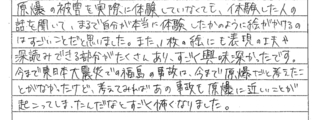 原爆の被害を実際に体験していなくても、体験した人の
話を聞いて、まるで自分が本当に体験したかのように絵がかけるの
はすごいことだと思いました。また、1枚の絵にも表現の工夫や
深読みできる部分がたくさんあり、すごく興味深かったです。
今まで東日本大震災での福島の事故は、今まで原爆だと考えたこ
とがなかったけど、考えてみればあの事故も原爆に近いことが
起こってしまったんだなとすごく怖くなりました。